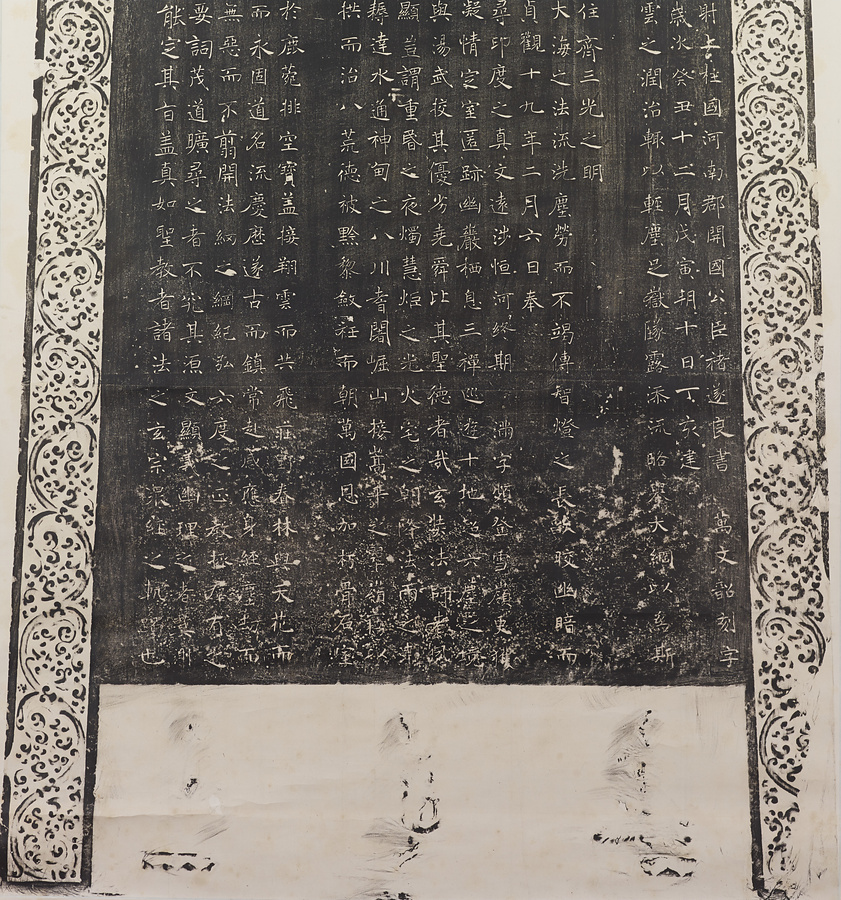 能定其旨蓋真如聖教者諸法之玄宗眾經之軌躅也
要詞茂道曠尋之者不究其源文顯義幽理之者莫測
無惡而不翦開法網之綱紀弘六度之正教拯群有之
而永固道名流慶歷遂古而鎮常赴感應身經塵劫而
於鹿菀排空寶蓋接翔雲而共飛莊野春林與天花而
拱而治八荒德被黔黎斂衽而朝萬國恩加朽骨石室
耨達水通神甸之八川耆闍崛山接嵩華之翠嶺竊以
顯豈謂重昏之夜燭慧炬之光火宅之朝降法雨之澤
與湯武校其優劣堯舜比其聖德者哉玄奘法師者夙
凝情定室匿跡幽巖栖息三禪巡遊十地超六塵之境
尋印度之真文遠涉恒河終期滿字頻登雪嶺更獲
貞觀十九年二月六日奉
大海之法流洗塵勞而不竭傳智燈之長焰皎幽暗而
住齊三光之明
雲之潤治輒以輕塵足嶽墜露添流略舉大綱以為斯
歲次癸丑十二月戊寅朔十日丁亥建
射上柱國河南郡開國公臣褚遂良書 萬文韶刻字